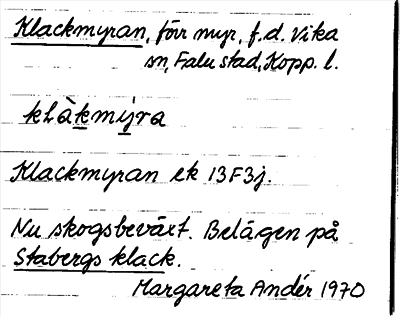 Klackmyran, förr myr, f.d. Vika
sn, Falu stad, Kopp. l.
klàkmy̱ra
Klackmyran ek 13F3j.
Nu skogsbeväxt. Belägen på
Stabergs klack.
Margareta Andér 1970